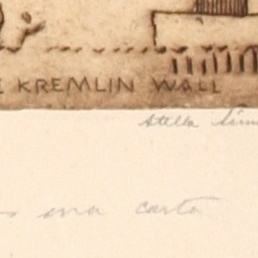 E KREMLIN WALL
Stella Simo
s una carta